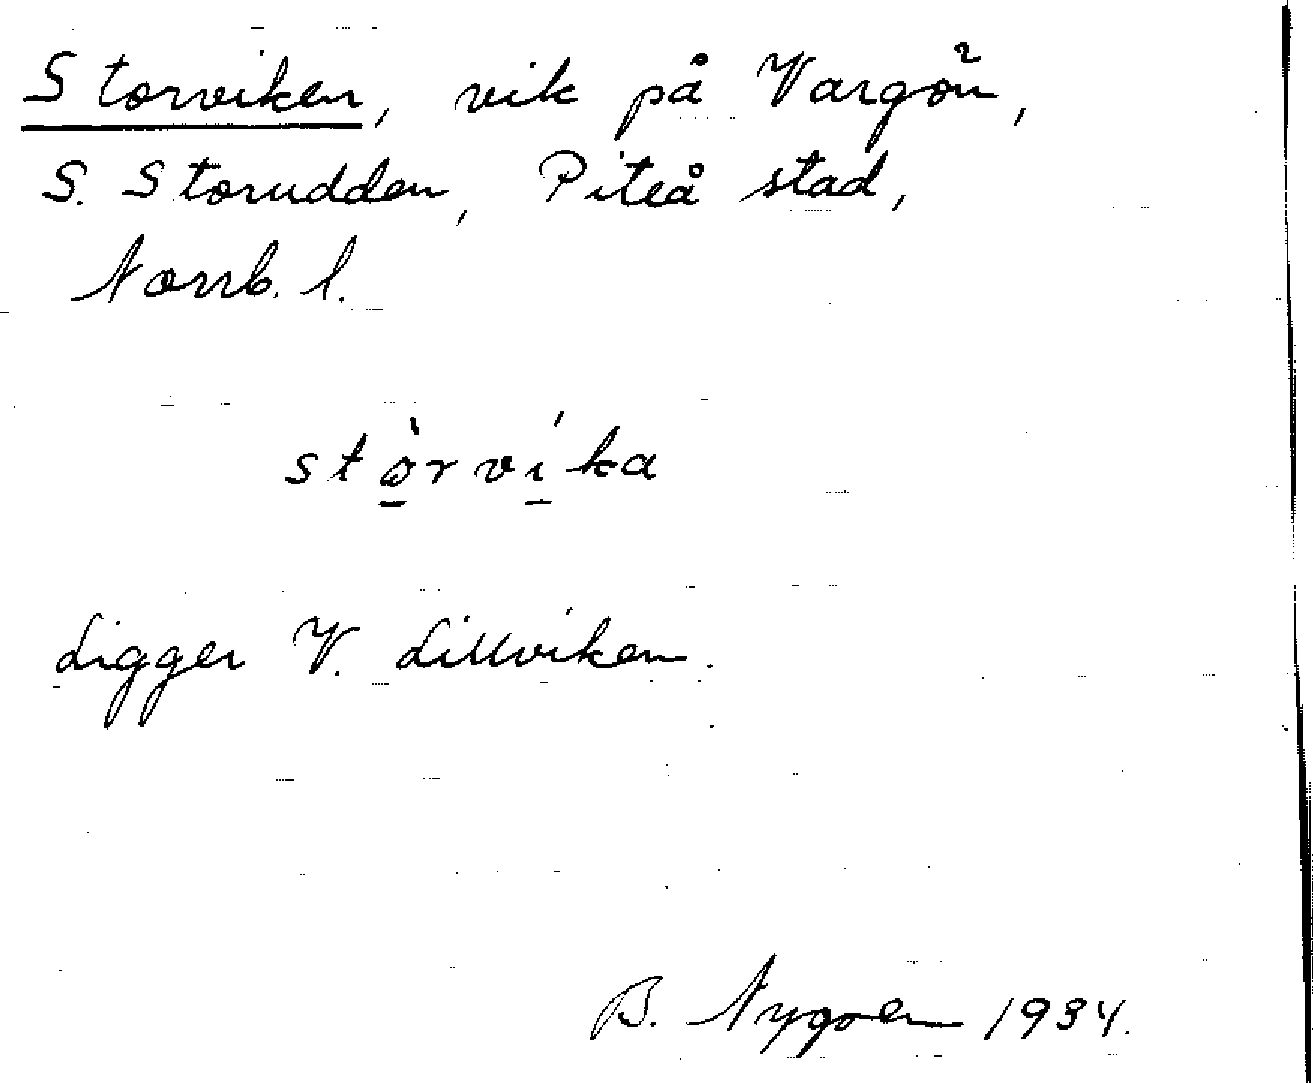 Storviken, vik på Vargön,
S. Storudden, Piteå stad,
Norrb. l.
stòrvíka
Ligger V. Lillviken.
B. Nygren 1934.